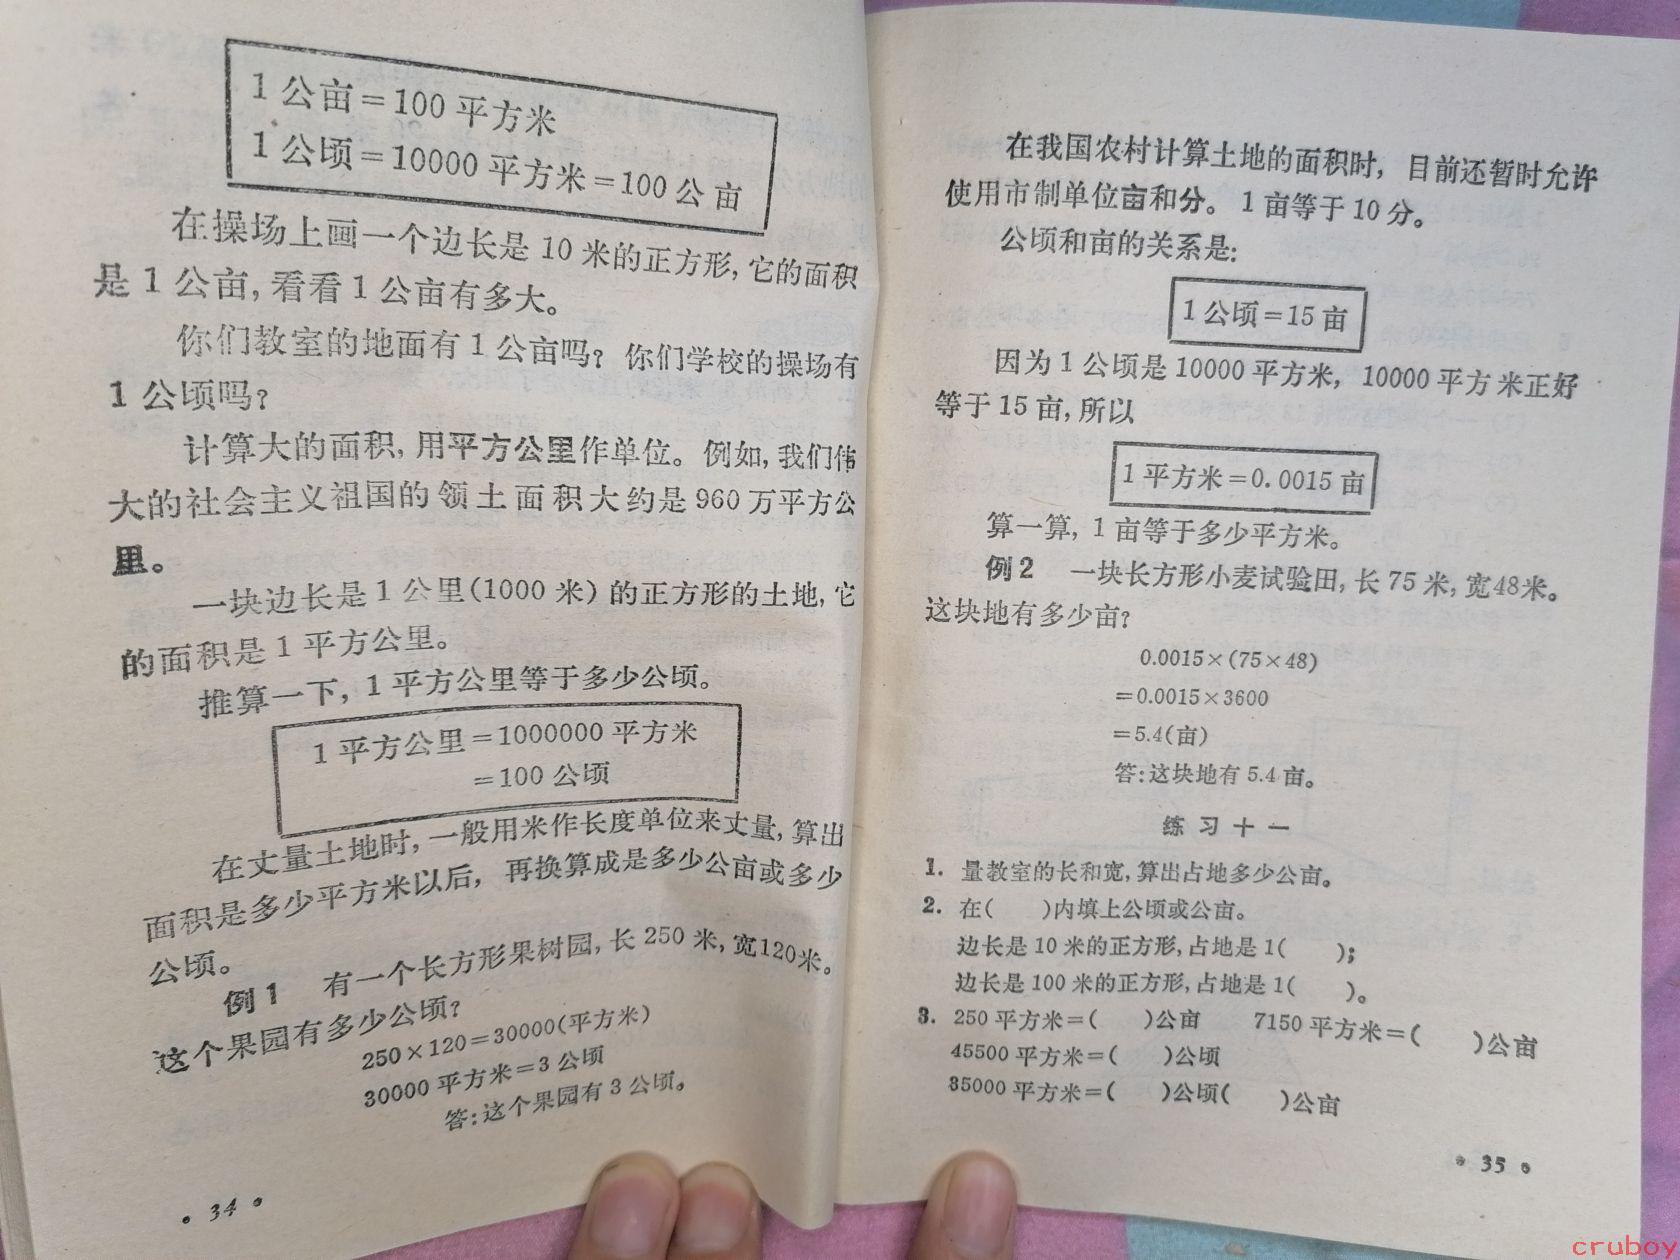 1公亩=100平方米
1公顷=10000平方米=100公亩
在操场上画一个边长是10米的正方形,它的面积
是1公亩,看看1公亩有多大。
你们教室的地面有1公亩吗?你们学校的操场有
1公顷吗?
计算大的面积,用平方公里作单位。例如,我们伟
大的社会主义祖国的领土面积大约是960万平方公
里。
一块边长是1公里(1000米)的正方形的土地,它
的面积是1平方公里。
推算一下,1平方公里等于多少公顷。
1平方公里=1000000平方米
=100公顷
在丈量土地时,一般用米作长度单位来丈量,算出
面积是多少平方米以后,再换算成是多少公亩或多少
公顷。
例1 有一个长方形果树园,长250米,宽120米。
这个果园有多少公顷?
250×120=30000(平方米)
30000平方米=3公顷
答:这个果园有3公顷。
• 34 •
在我国农村计算土地的面积时,目前还暂时允许
使用市制单位亩和分。1亩等于10分。
公顷和亩的关系是:
1公顷=15亩
因为1公顷是10000平方米,10000平方米正好
等于15亩,所以
1平方米=0.0015亩
算一算,1亩等于多少平方米。
例2 一块长方形小麦试验田,长75米,宽48米。
这块地有多少亩?
0.0015×(75×48)
=0.0015×3600
=5.4(亩)
答:这块地有5.4亩。
练习十一
1. 量教室的长和宽,算出占地多少公亩。
2. 在( )内填上公顷或公亩。
边长是10米的正方形,占地是1( );
边长是100米的正方形,占地是1( )。
3. 250平方米=( )公亩 7150平方米=( )公亩
45500平方米=( )公顷
35000平方米=( )公顷( )公亩
• 35 •
cruboy